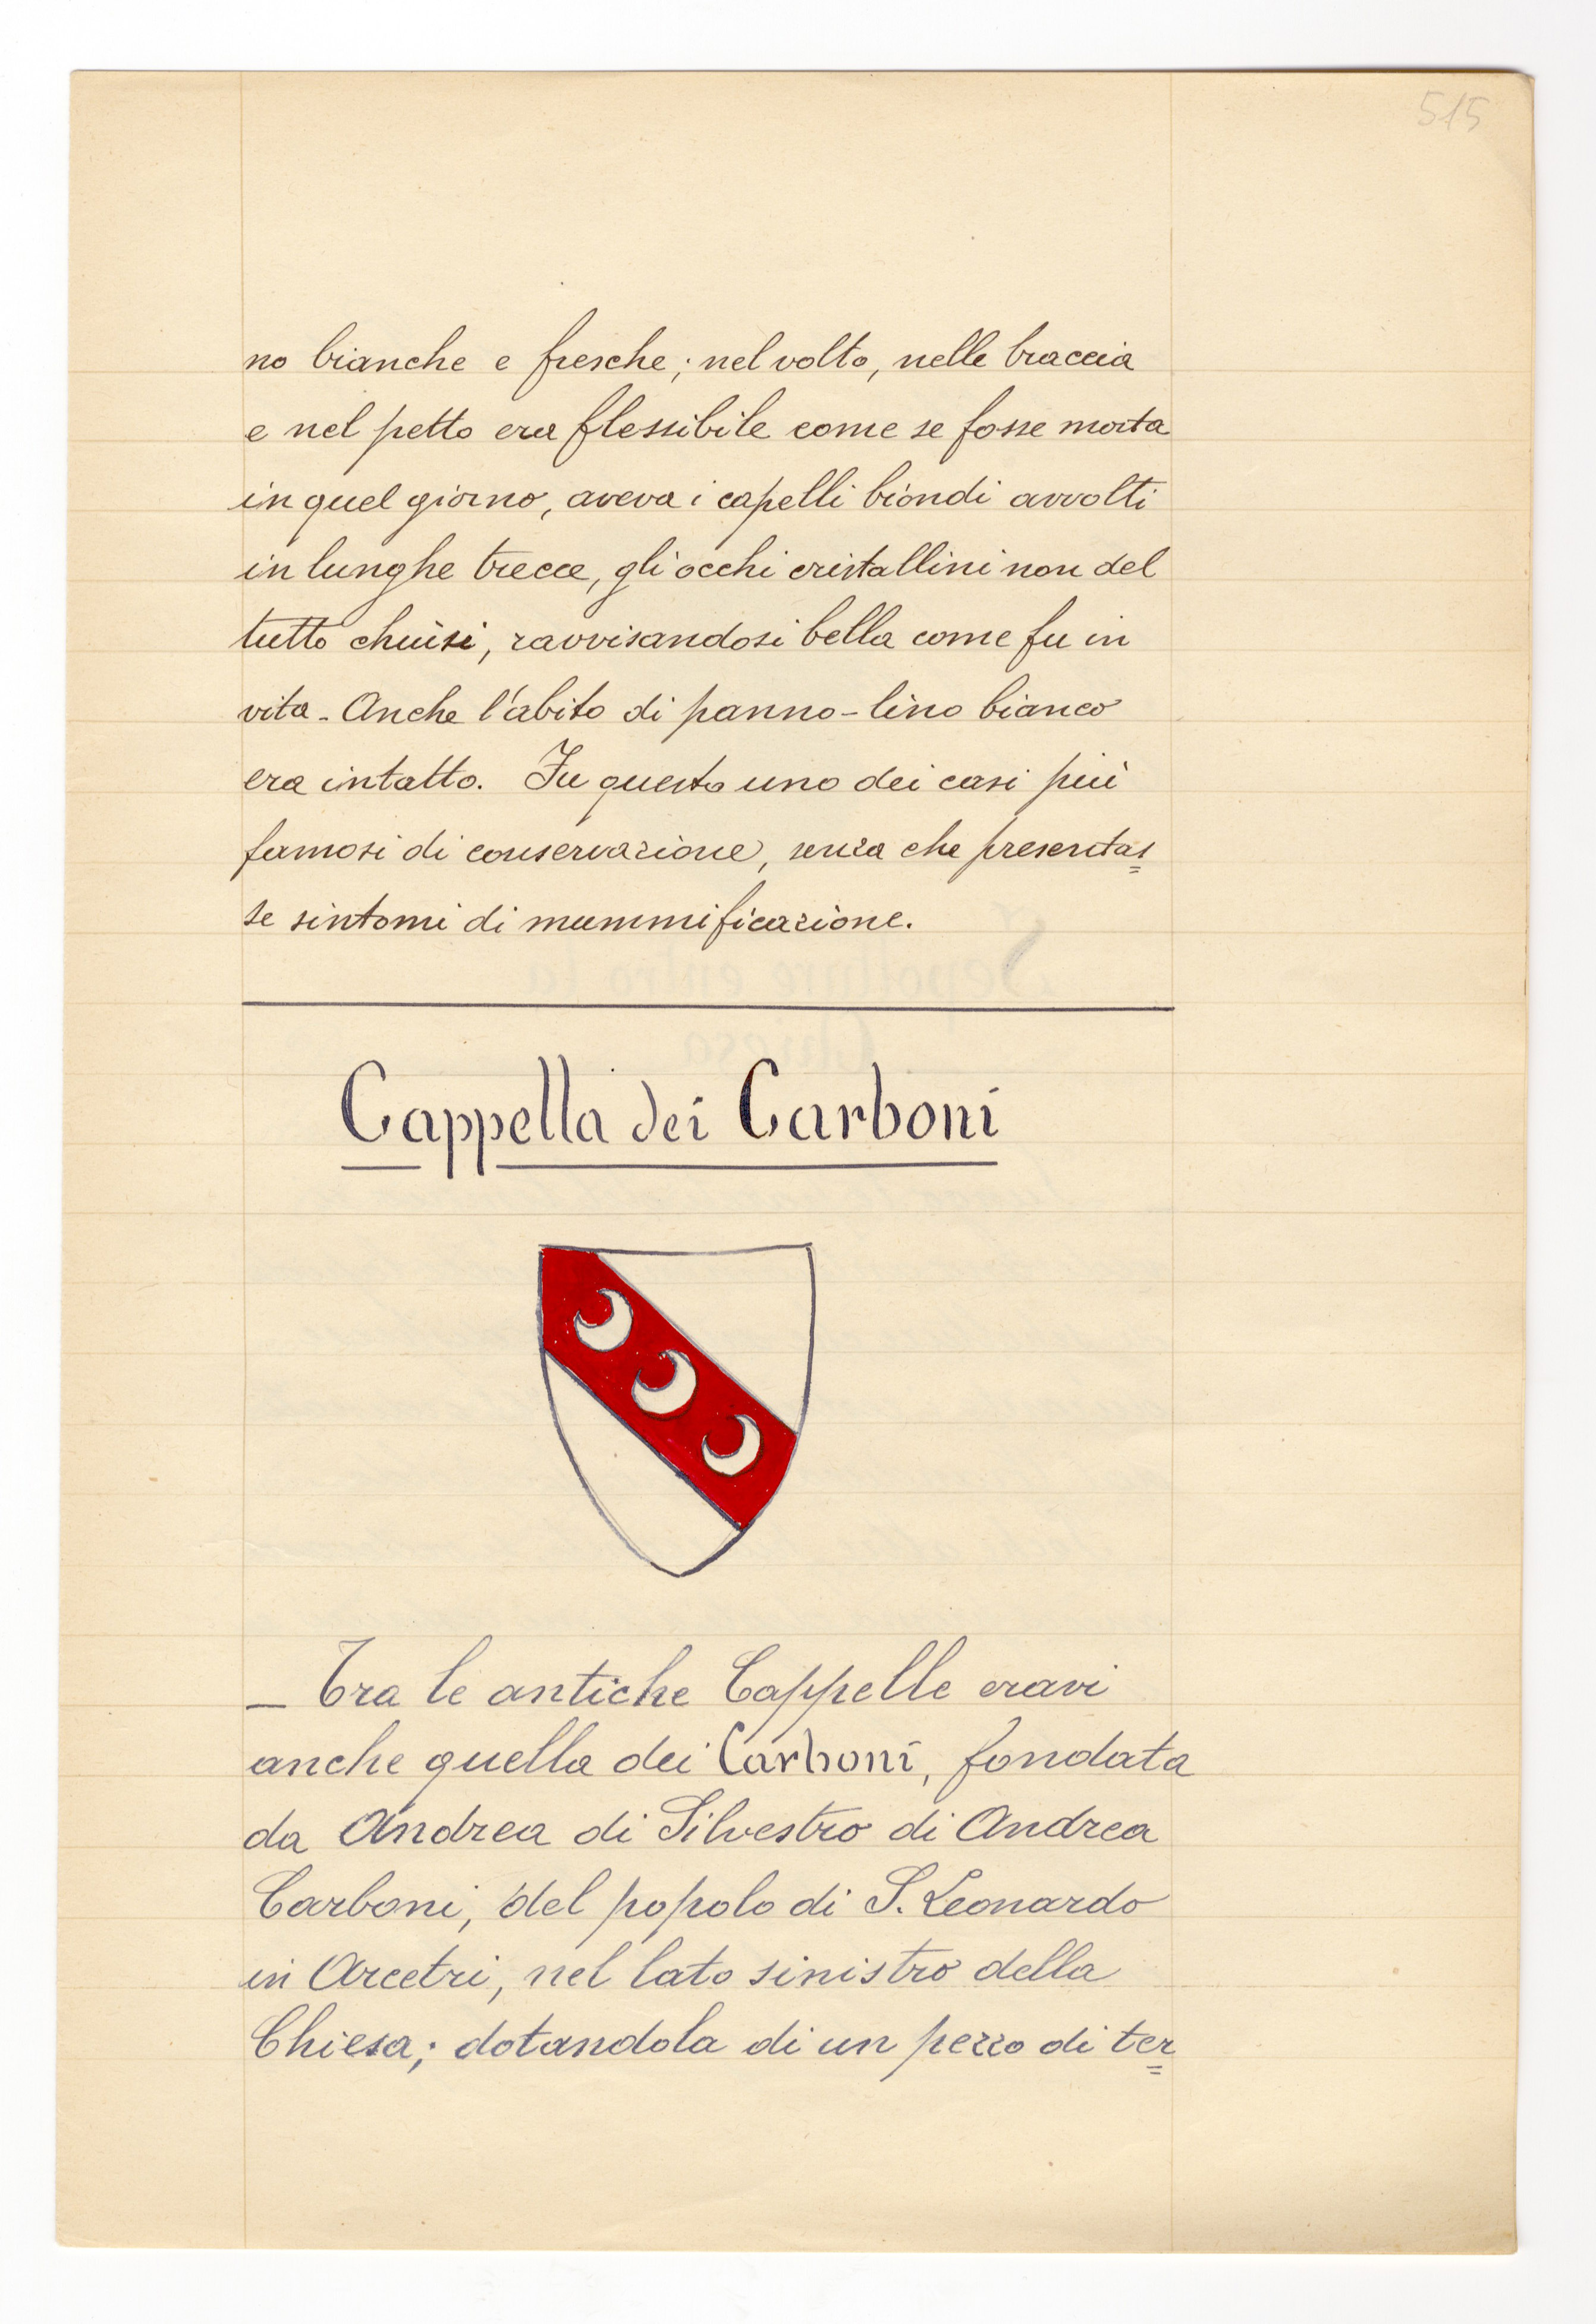 515
no bianche e fresche; nel volto, nelle braccia
e nel petto era flessibile come se fosse morta
in quel giorno, aveva i capelli biondi avvolti
in lunghe trecce, gli occhi cristallini non del
tutto chiusi, ravvisandosi bella come fu in
vita - Anche l'abito di panno-lino bianco
era intatto. Fu questo uno dei casi più
famosi di conservazione, senza che presentas=
se sintomi di mummificazione.
Cappella dei Carboni
— Tra le antiche Cappelle eravi
anche quella dei Carboni, fondata
da Andrea di Silvestro di Andrea
Carboni, del popolo di S. Leonardo
in Arcetri, nel lato sinistro della
Chiesa; dotandola di un pezzo di ter=